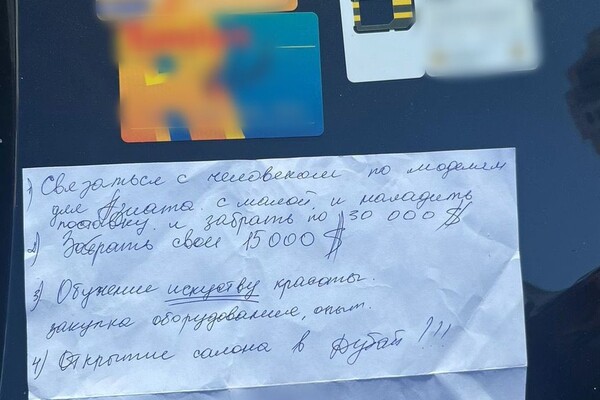 1) Связаться с человеком по моделям
для Азиата с малой и наладить
поставку и забрать по 30 000 $
2) Забрать свои 15 000 $
3) Обучение искуству красоты.
закупка оборудование, опыт.
4) Открытие салона в Дубай !!!